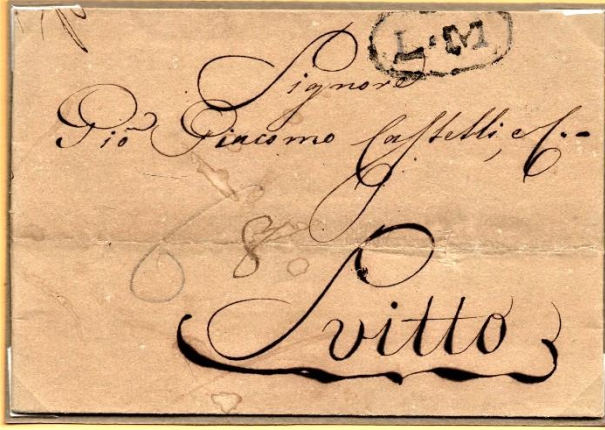 L·M
Signore
Gio. Giacomo Castelli, e C.
Svitto
6 8